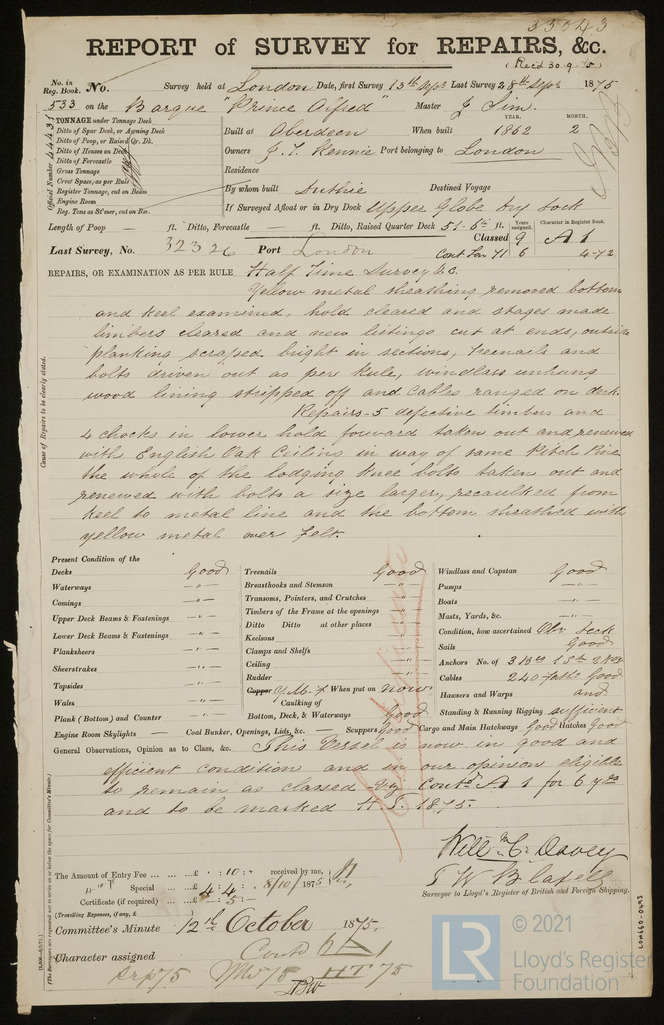 33543
REPORT of SURVEY for REPAIRS, &c.
(Recd 30.9.75)
No. in Reg. Book. No. Survey held at London Date, first Survey 13th Sept Last Survey 28th Sept 1875
533 on the Barque "Prince Alfred" Master J Sim.
Official Number 44431
TONNAGE under Tonnage Deck
Ditto of Spar Deck, or Awning Deck
Ditto of Poop, or Raised Qr. Dk.
Ditto of Houses on Deck
Ditto of Forecastle
Gross Tonnage
Crew Space, as per Rule
Register Tonnage, cut on Beam
Engine Room
Reg. Tons as St'mer, cut on Bm.
YEAR. MONTH.
Built at Aberdeen When built 1862 2
Owners J. T. Rennie Port belonging to London
Residence
By whom built Duthie Destined Voyage
If Surveyed Afloat or in Dry Dock Upper Globe Dry Dock
Length of Poop — ft. Ditto, Forecastle — ft. Ditto, Raised Quarter Deck 51.6 ft. Years assigned. Character in Register Book.
Classed 9 A1
Last Survey, No. 32326 Port London Cont 71 6 4-72
REPAIRS, OR EXAMINATION AS PER RULE Half Time Survey &c.
Cause of Repairs to be clearly stated.
Yellow metal sheathing removed bottom
and keel examined, hold cleared and stages made
limbers cleared and new listings cut at ends, outside
planking scraped bright in sections, treenails and
bolts driven out as per Rule, windlass unhung
wood lining stripped off and Cables ranged on deck.
Repairs - 5 defective timbers and
4 chocks in lower hold forward taken out and renewed
with English Oak Ceiling in way of same Pitch Pine
the whole of the lodging knee bolts taken out and
renewed with bolts a size larger, recaulked from
keel to metal line and the bottom sheathed with
yellow metal over felt.
Present Condition of the
Decks Good Treenails Good Windlass and Capstan Good
Waterways — " — Breasthooks and Stemson — " — Pumps — " —
Comings — " — Transoms, Pointers, and Crutches — " — Boats — " —
Upper Deck Beams & Fastenings — " — Timbers of the Frame at the openings — " — Masts, Yards, &c. — " —
Lower Deck Beams & Fastenings — " — Ditto Ditto at other places — " — Condition, how ascertained Obn Deck
Plankshears — " — Keelsons — " — Sails Good
Sheerstrakes — " — Clamps and Shelfs — " — Anchors No. of 3
Topsides — " — Ceiling — " — Cables 240 Faths Good
Wales — " — Rudder — " — Hawsers and Warps and
Plank (Bottom) and Counter — " — Copper Y.M. When put on now Standing & Running Rigging sufficient
Caulking of
Bottom, Deck, & Waterways Good
Engine Room Skylights — Coal Bunker, Openings, Lids, &c. — Scuppers Good Cargo and Main Hatchways Good Hatches Good
General Observations, Opinion as to Class, &c. This Vessel is now in good and
efficient condition and in our opinion eligible
to remain as classed viz Contd A1 for 6 yrs
and to be marked H.T. 1875.
Willm C. Davey
T W Blasell
Surveyor to Lloyd's Register of British and Foreign Shipping.
The Amount of Entry Fee ... ... £ : 10 : received by me,
Special ... ... £ 4 : 4 : 8/10/1875
Certificate (if required) ... £ : 5 :
(Travelling Expenses, if any, £ )
Committee's Minute 12th October 1875.
Character assigned Contd 6 A 1
Srp 75 HT 75
(The Surveyors are requested not to write on or below the space for Committee's Minute.)
LON660-0443
LR
© 2021
Lloyd's Register
Foundation